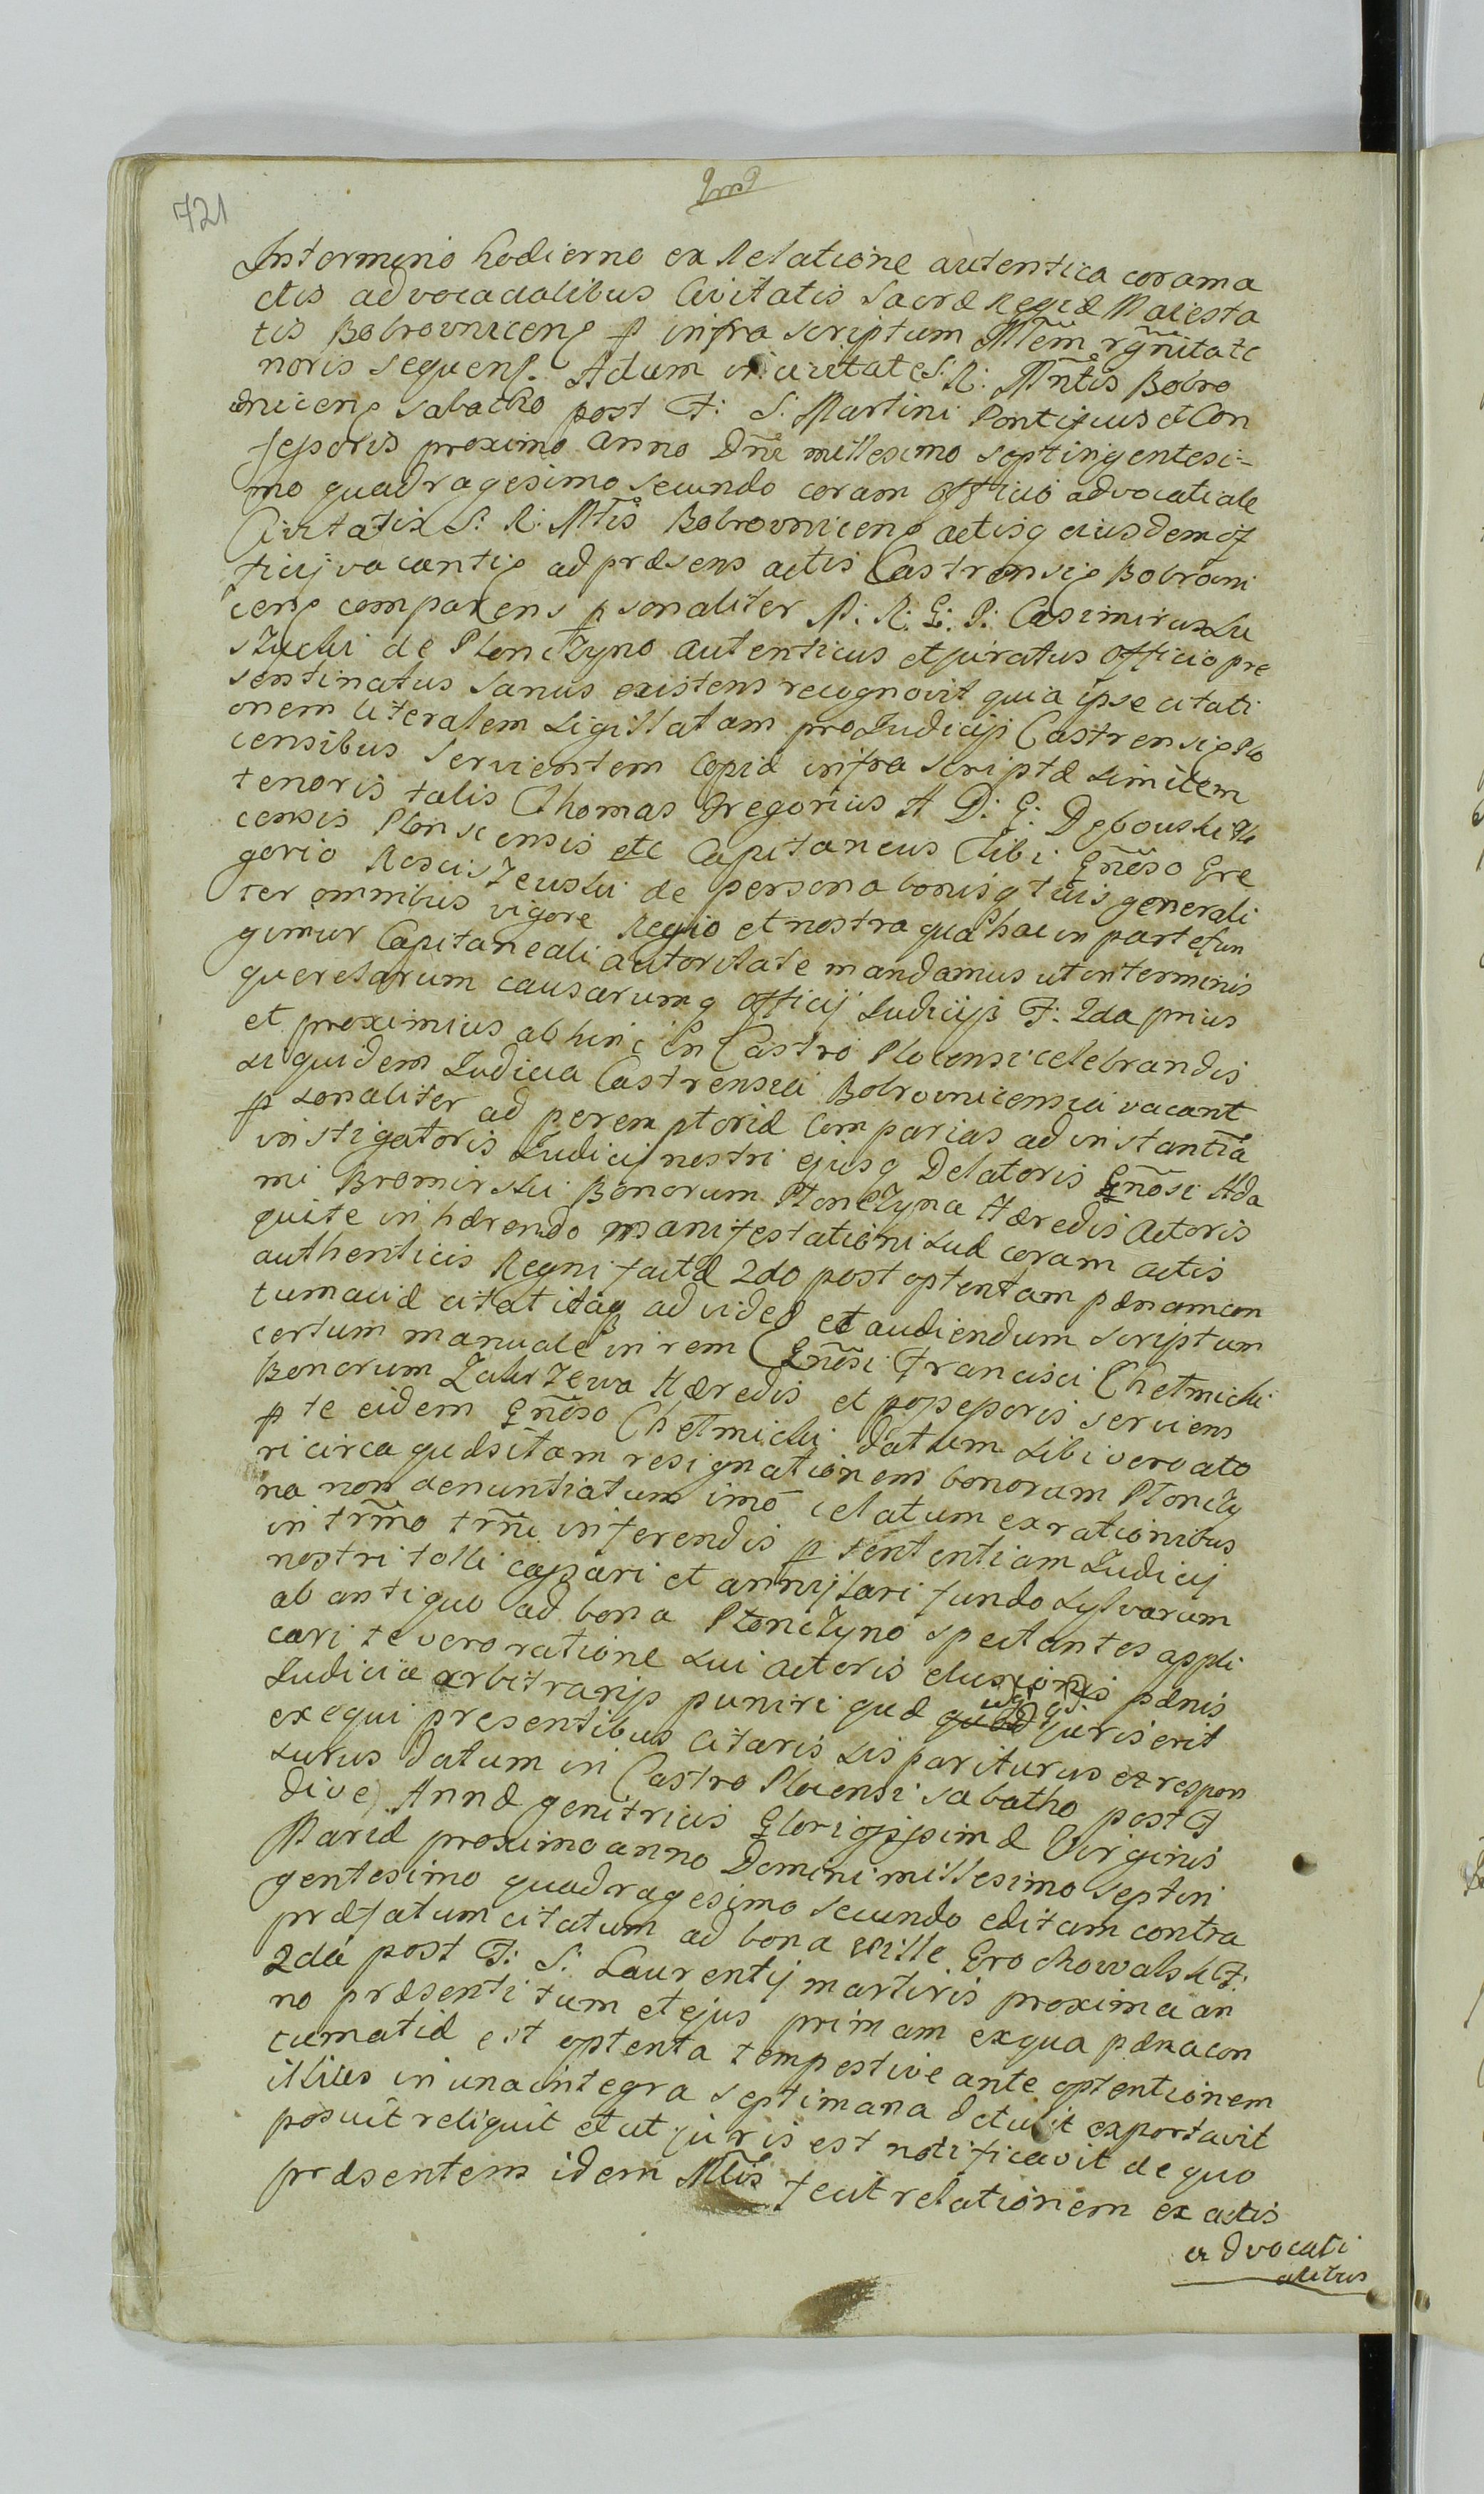 721
In termino hodierno ex Relatione autentica coram a
ctis advocadalibus Civitatis Sacræ Regiæ Maiesta
tis Bobrovnicens ꝑ infra scriptum Mtem rgnita te
noris sequens. Actum in civitate S: R: Mntis Bobro
vnicens sabatho post F: S: Martini Pontificis et Con
fessoris proximo anno Dni millesimo septingentesi-
mo quadragesimo secundo coram officio advocatiale
Civitatis S: R: Mtis Bobrovnicens actisq eiusdem of
ficij vacantis ad præsens actis Castrensis Bobrowni
cens comparens ꝑsonaliter M: R: G: P: Casimirus Lu
szycki de Plonczyno autenticus et juratus officio pre
sentinatus sanus existens recognovit quia ipse citati
onem literalem sigillatam pro Judicijs Castrensis Plo
censibus servientem Copiæ infra scriptæ similem
tenoris talis Thomas Gregorius A D: G: Deboushi Plo
censis Plonscensis etc Capitaneus Tibi Gnoso Gre
gorio Rosciszeuski de persona bonisq tuis generali
ter omnibus vigore Regio et nostra qua hac in parte fun
gimur Capitaneali autoritate mandamus ut in terminis
querelarum causarumq officij Judicijs F: 2da prius
et proximius ab hinc in Castro Plocensi celebrandis
siquidem Judicia Castrensia Bobrovnicensia vacant
ꝑsonaliter ad peremptoriæ Comparias ad instantia
instigatoris Judicij nostri ejusq Delatoris Gnosi Ada
mi Bromirski Bonorum Plonczyna Hæredis Actoris
qui te inhærendo manifestationi suæ coram actis
authenticis Regni factæ 2do post optentam pænam con
tumaciæ citat itaq ad vided et audiendum scriptum
certum manuale in rem Gnosi Francisci Chełmicki
Bonorum Zakrzewa Hæredis et possessoris serviens
ꝑ te eidem Gnoso Chełmicki datum sibi vero acto
ri circa quæsitam resignationem bonorum Plonczy
na non denuntiatum imo celatum ex rationibus
in trmo trni inferendis ꝑ sententiam Judicij
nostri tolli cassari et annijlari fundo sylvarum
ab antiquo ad bona Plonczyno spectantes appli
cari te vero ratione sui actoris elusionis pænis
Judicia arbitrarijs puniri quæ juris erit
exequi presentibus citaris sis pariturus et respon
surus Datum in Castro Plocensi sabatho post F
Dive Annæ genitricis Gloriosissimæ Virginis
Mariæ proximo anno Domini millesimo septin
gentesimo quadragesimo secundo editam contra
præfatum citatum ad bona Wille Grochowalsk F:
2da post F: S: Laurentij martiris proxima an
no præsenti tum et ejus primam ex qua pæna con
tumatiæ est optenta tempestive ante optentionem
illius in una integra septimana detulit exportavit
posuit reliquit et ut juris est notificavit de quo
præsentem idem Mlis fecit relationem ex actis
advocati
alibus